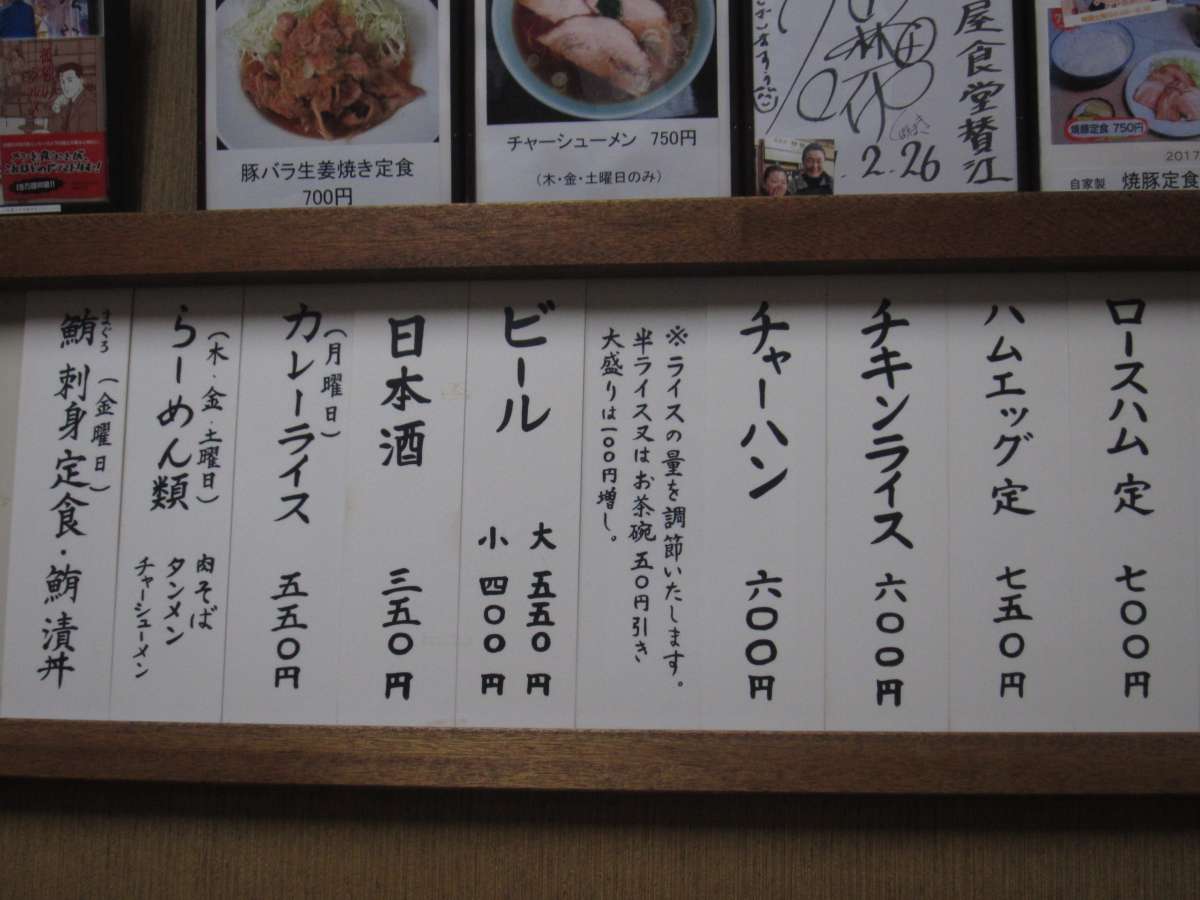 豚バラ生姜焼き定食
700円
チャーシューメン 750円
（木・金・土曜日のみ）
屋食堂賛江
2.26
焼豚定食 750円
2017
自家製 焼豚定食
ロースハム定 七〇〇円
ハムエッグ定 七五〇円
チキンライス 六〇〇円
チャーハン 六〇〇円
※ライスの量を調節いたします。
半ライス又はお茶碗五〇円引き
大盛りは一〇〇円増し。
ビール 大 五五〇円
小 四〇〇円
日本酒 三五〇円
（月曜日）
カレーライス 五五〇円
（木・金・土曜日）
らーめん類 肉そば
タンメン
チャーシューメン
まぐろ（金曜日）
鮪刺身定食・鮪漬丼